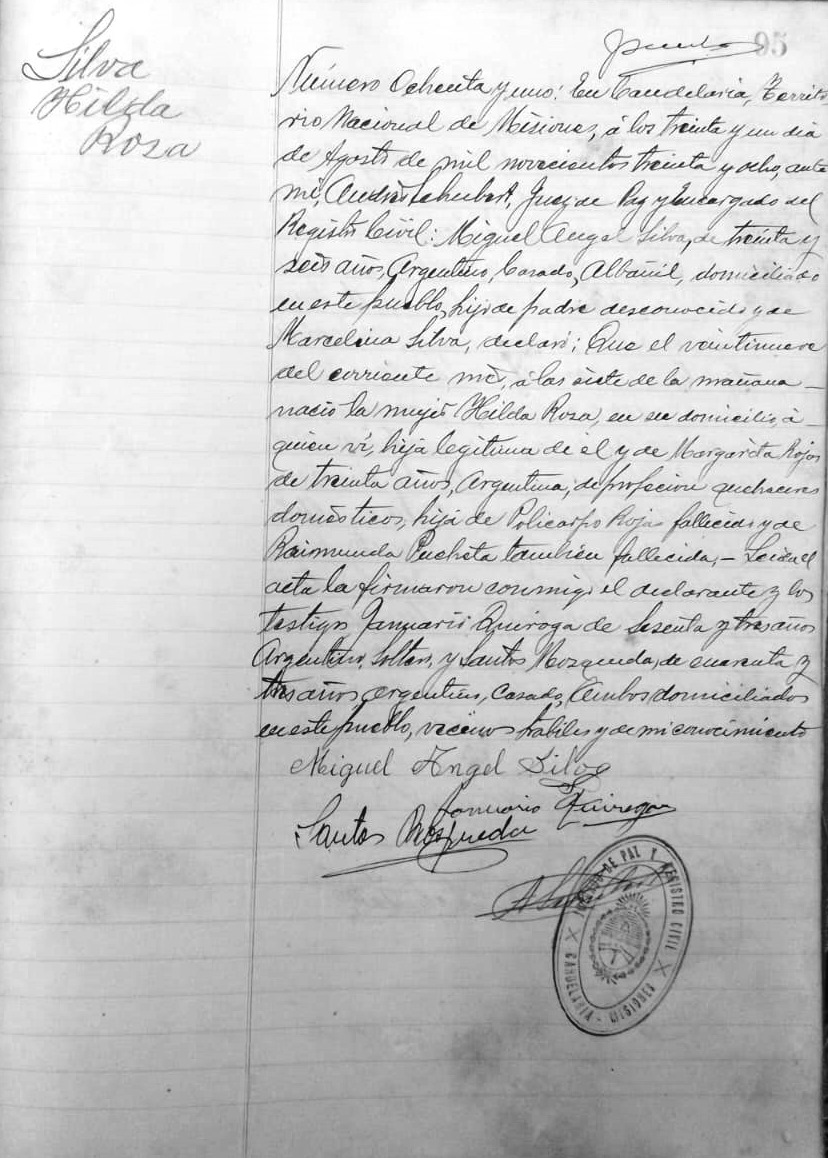 95
Silva
Hilda
Rosa
Número Ochenta y uno: En Candelaria, Territo
rio Nacional de Misiones, á los treinta y un dia
de Agosto de mil novecientos treinta y ocho, ante
mi, Andrés Schubert, Juez de Paz y Encargado del
Registro Civil: Miguel Angel Silva, de treinta y
seis años, Argentino, Casado, Albañil, domiciliado
en este pueblo, hijo de padre desconocido y de
Marcelina Silva, declaró; Que el veintinueve
del corriente mes, á las siete de la mañana
nació la mujer Hilda Rosa, en su domicilio, á
quien ví, hija legitima de el y de Margarita Rojas
de treinta años, Argentina, de profecion quehaceres
domésticos, hija de Policarpo Rojas fallecido y de
Raimunda Pucheta tambien fallecida,— Leida el
acta la firmaron conmigo el declarante y los
testigos Januario Quiroga de Sesenta y tres años
Argentino, Soltero, y Santos Mosqueda, de cuarenta y
tres años, argentino, Casado, Ambos domiciliados
en este pueblo, vecinos habiles y de mi conocimiento
Miguel Angel Silva
Januario Quiroga
Santos Mosqueda
JUZGADO DE PAZ Y REGISTRO CIVIL
CANDELARIA - MISIONES